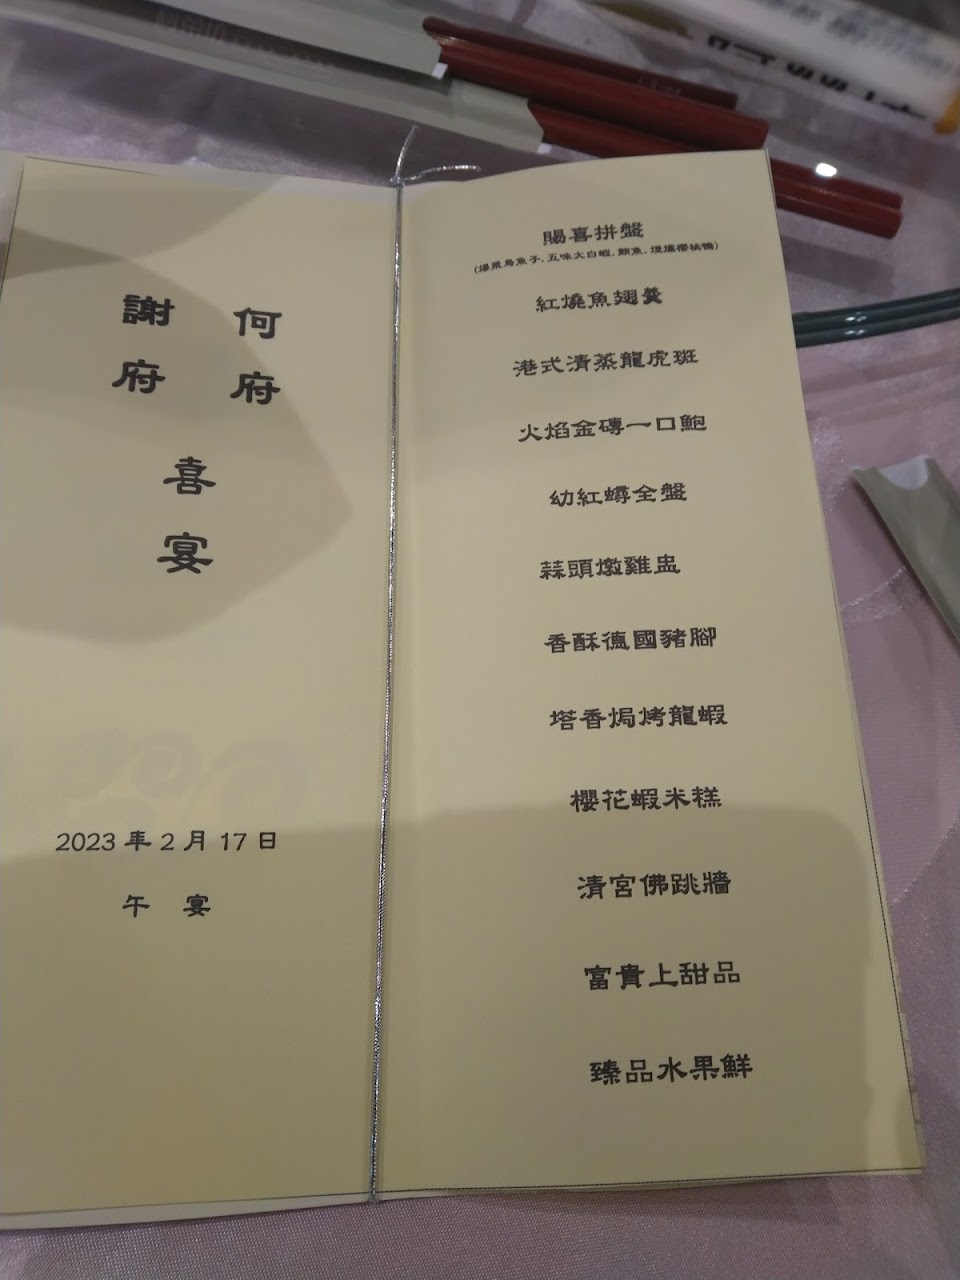 何府
謝府
喜宴
2023 年 2 月 17 日
午 宴
賜喜拼盤
(爆漿烏魚子.五味大白蝦.鮑魚.煙燻櫻桃鴨)
紅燒魚翅羹
港式清蒸龍虎斑
火焰金磚一口鮑
幼紅蟳全盤
蒜頭燉雞盅
香酥德國豬腳
塔香焗烤龍蝦
櫻花蝦米糕
清宮佛跳牆
富貴上甜品
臻品水果鮮